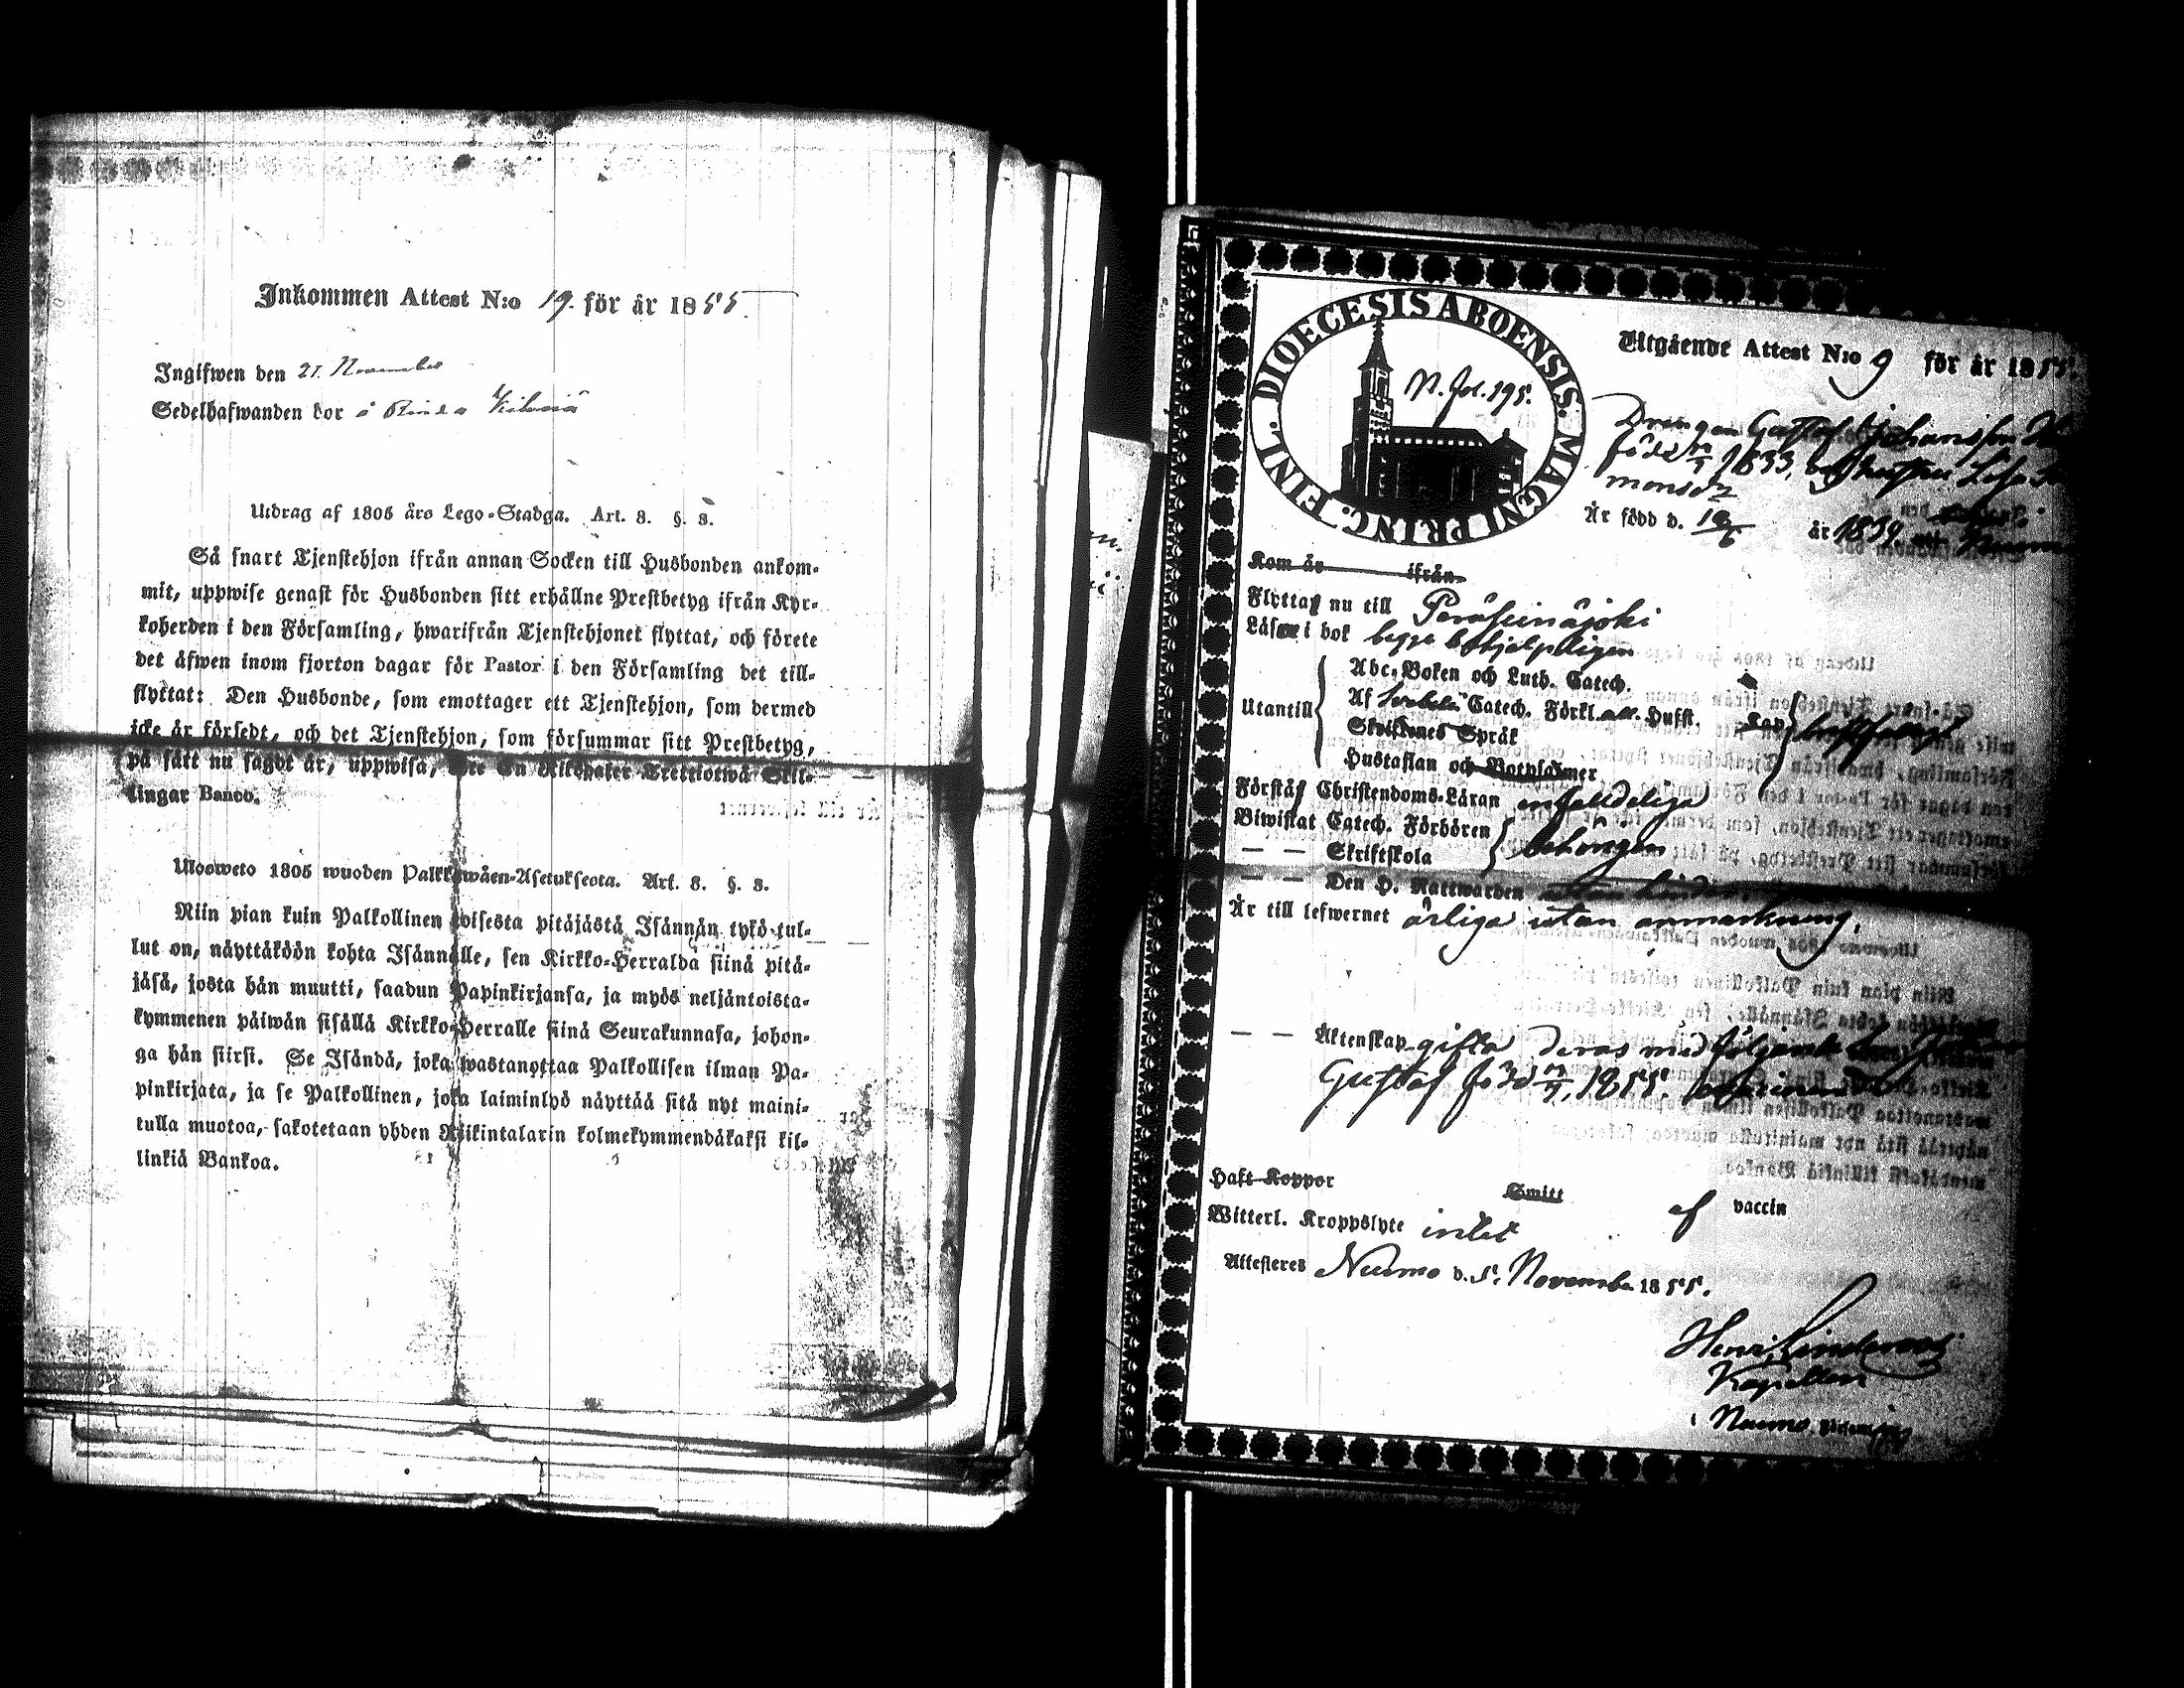 Inkommen Attest N:o 19. för år 1855
Ingifwen den 21. November
Sedelhafwanden bor å
Utdrag af 1805 års Lego-Stadga. Art. 8. §. 8.
Så snart Tjenstehjon ifrån annan Socken till Husbonden ankom-
mit, uppwise genast för Husbonden sitt erhållne Prestbetyg ifrån Kyr-
koherden i den Församling, hwarifrån Tjenstehjonet flyttat, och förete
det äfwen inom fjorton dagar för Pastor i den Församling det till-
flyttat: Den Husbonde, som emottager ett Tjenstehjon, som dermed
icke är försedt, och det Tjenstehjon, som försummar sitt Prestbetyg,
på sätt nu sagdt är, uppwisa, Trettiotwå Skil-
lingar Banco.
Ulosweto 1805 wuoden Palkkawäen-Asetuksesta. Art. 8. §. 8.
Niin pian kuin Palkollinen toisesta pitäjästä Isännän tykö tul-
lut on, näyttäköön kohta Isännälle, sen Kirkko-Herralda siinä pitä-
jäsä, josta hän muutti, saadun Papinkirjansa, ja myös neljäntoista-
kymmenen päiwän sisällä Kirkko-Herralle siinä Seurakunnasa, johon-
ga hän siirsi. Se Isändä, joka wastanottaa Palkollisen ilman Pa-
pinkirjata, ja se Palkollinen, joka laiminlyö näyttää sitä nyt maini-
tulla muotoa, sakotetaan yhden Riikintalarin kolmekymmendäkaksi kil-
linkiä Bankoa.
DIOECESIS ABOENSIS. MAGNI PRINC. FINL.
N. fol. 195.
Utgående Attest N:o 9 för år 1855.
Drengen Gustaf Johansson
född 1833,
Är född d. år 1839
Kom år ifrån
Flyttar nu till Peräseinäjoki
Läser i bok begge behjelpligen
Utantill
Abc-Boken och Luth. Catech.
Af Svebelii Catech. Förkl. Husst. Cap
Skriftenes Språk
Hustaflan och Botpsalmer
Förstår Christendoms-Läran enfaldeliga
Biwistat Catech. Förhören behörigen
— — Skriftskola
— — Den H. Nattwarden
Är till lefwernet ärliga utan anmärkning.
— — Äktenskap gifta deras medföljande
Gustaf född 1855.
Haft Koppor Smitt af vaccin
Witterl. Kroppslyte intet
Attesteres Nurmo d. 5. November 1855.
Kapellan
i Nurmo.